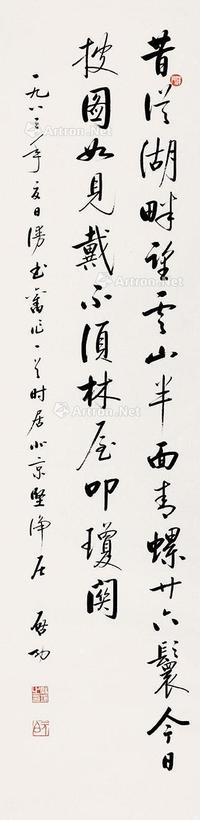 昔從湖畔望雲山半面青螺廿六鬟今日
披圖如見戴不須林屋叩瓊關
一九八三年夏日漫書舊作一首時居北京堅淨居 啓功
Artron.Net